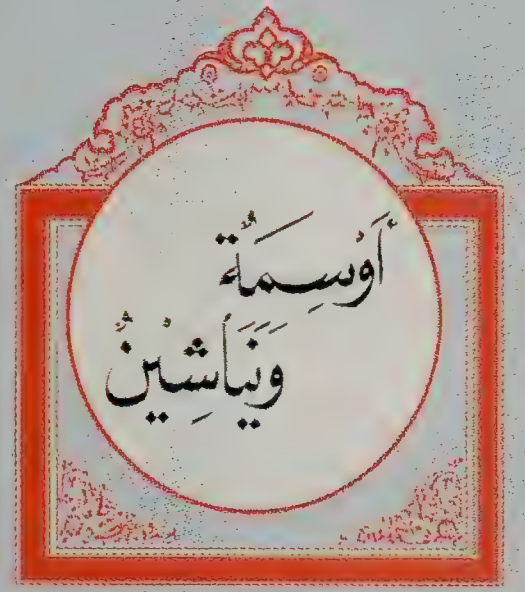 أَوْسِمَةٌ
وَنَيَاشِينُ